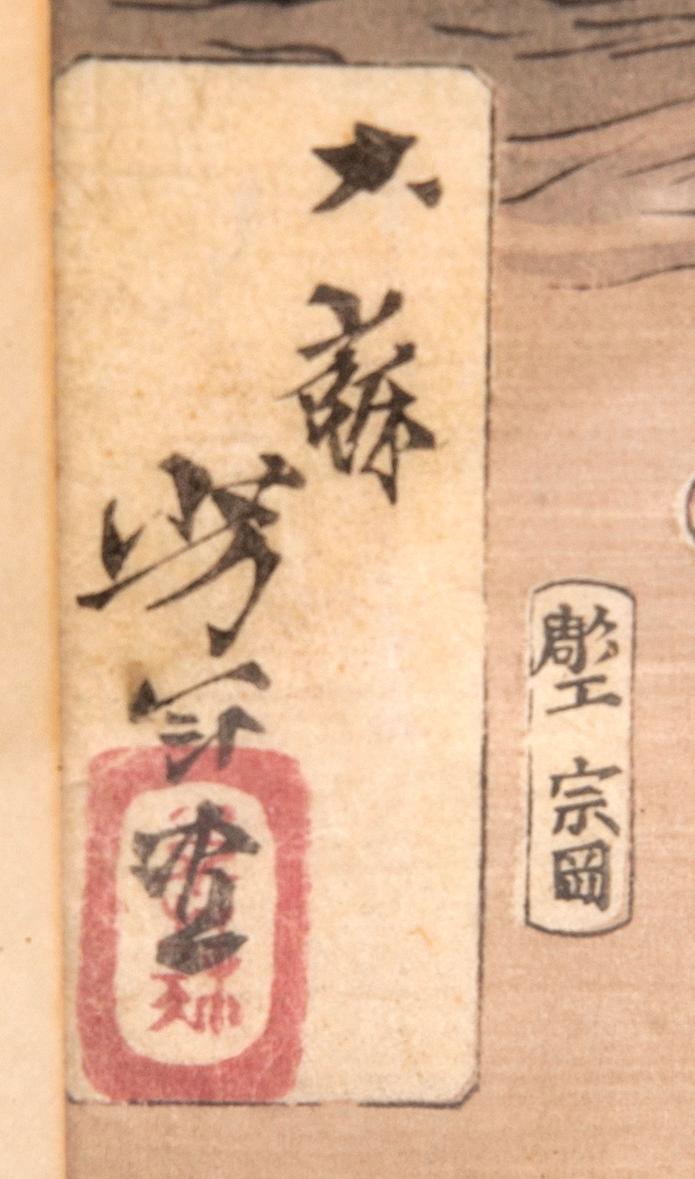 大蘇
芳年畫
彫工 宗岡